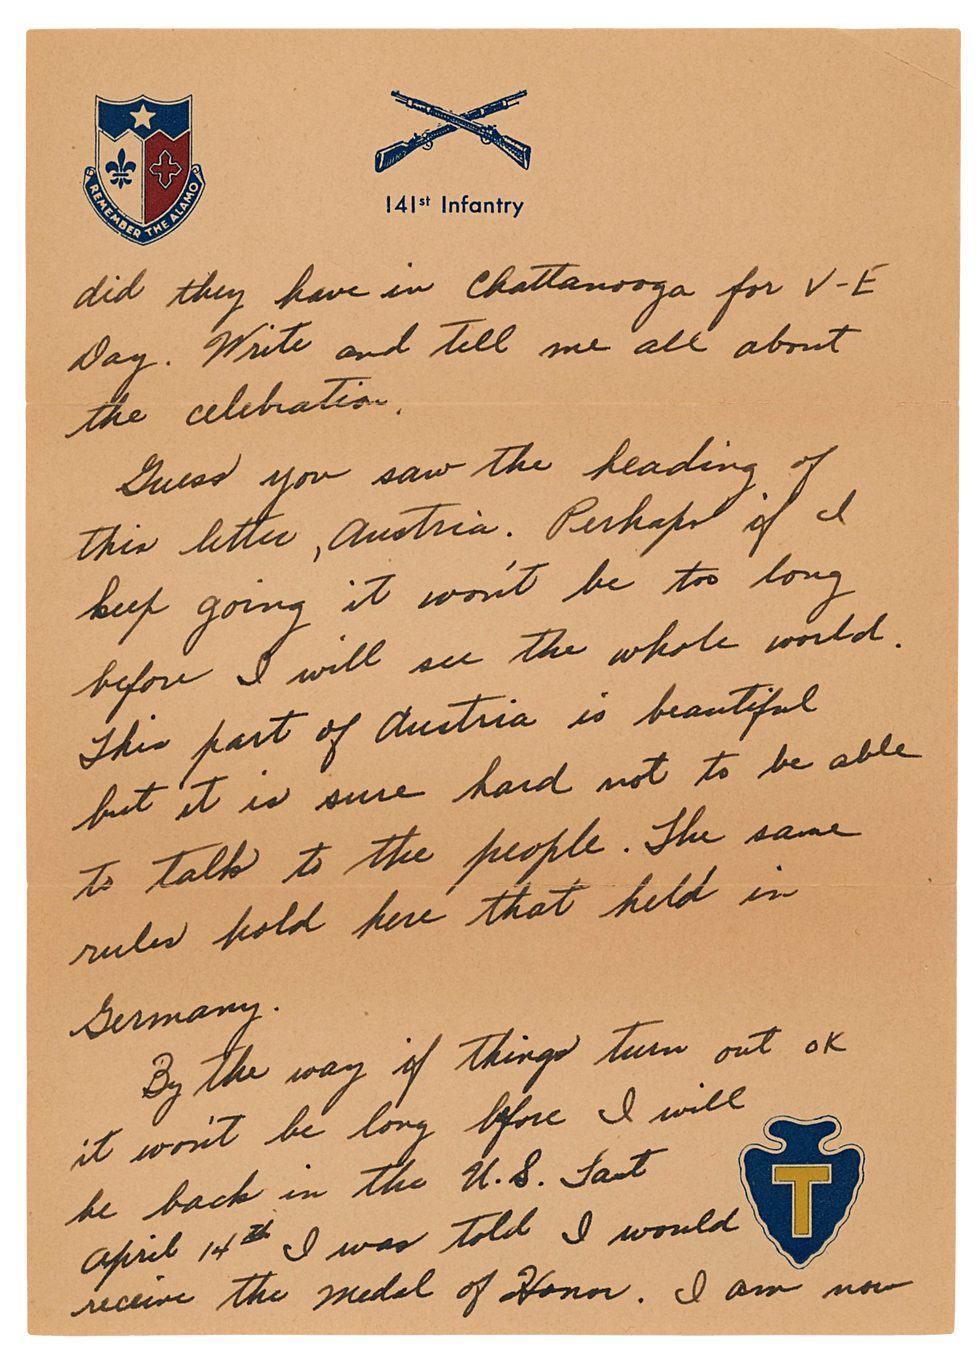 REMEMBER THE ALAMO
141st Infantry
did they have in Chattanooga for V-E
Day. Write and tell me all about
the celebration.
Guess you saw the heading of
this letter, Austria. Perhaps if I
keep going it won't be too long
before I will see the whole world.
This part of Austria is beautiful
but it is sure hard not to be able
to talk to the people. The same
rules hold here that held in
Germany.
By the way if things turn out OK
it won't be long before I will
be back in the U.S. Last
April 14th I was told I would
receive the medal of Honor. I am now
T